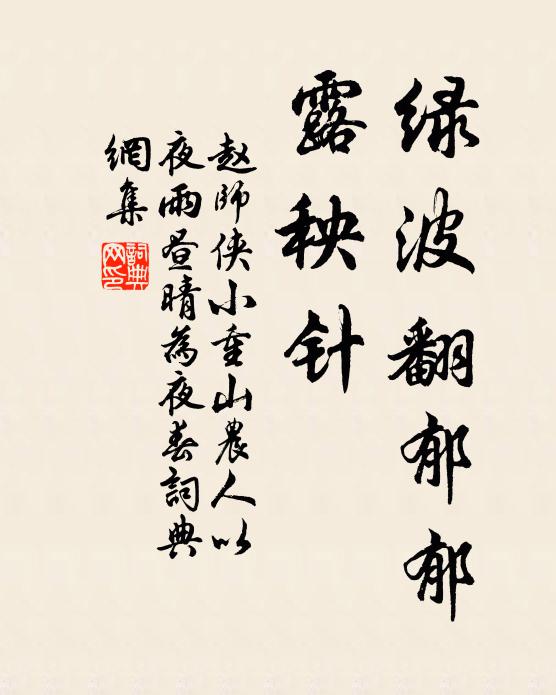 绿波翻郁郁
露秧针
赵师侠小重山农人以
夜雨昼晴为夜春词典
網集
詞典网印